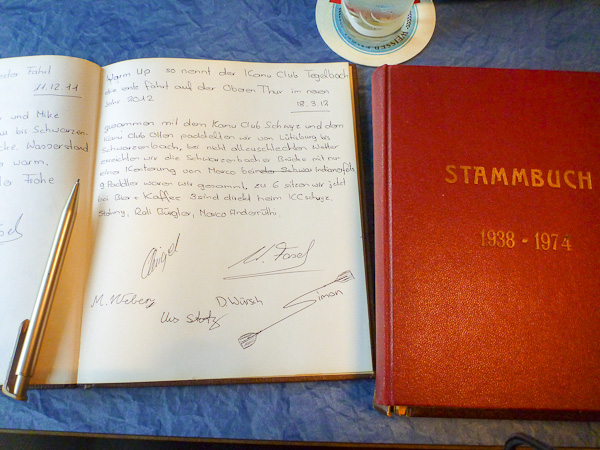 Fahrt
11.12.11
und Mike
bis Schwarzen-
Wasserstand
warm,
Frohe
Warm Up so nennt der Kanu Club Tegelbach
die erste Fahrt auf der Oberen Thur im neuen
Jahr 2012
18.3.12
zusammen mit dem Kanu Club Schwyz und dem
Kanu Club Olten paddelten wir von Lütisburg bis
Schwarzenbach, bei nicht allzuschlechten Wetter
erreichten wir die Schwarzenbacher Brücke mit nur
einer Kenterung von Marco beim
9 Paddler waren wir gesamt, zu 6 sitzen wir jetzt
bei Bier + Kaffee 3 sind direkt heim KC Schwyz
Marco
M. Weberg
D Würsch
Simon
Urs
STAMMBUCH
1938 - 1974
WEISSER